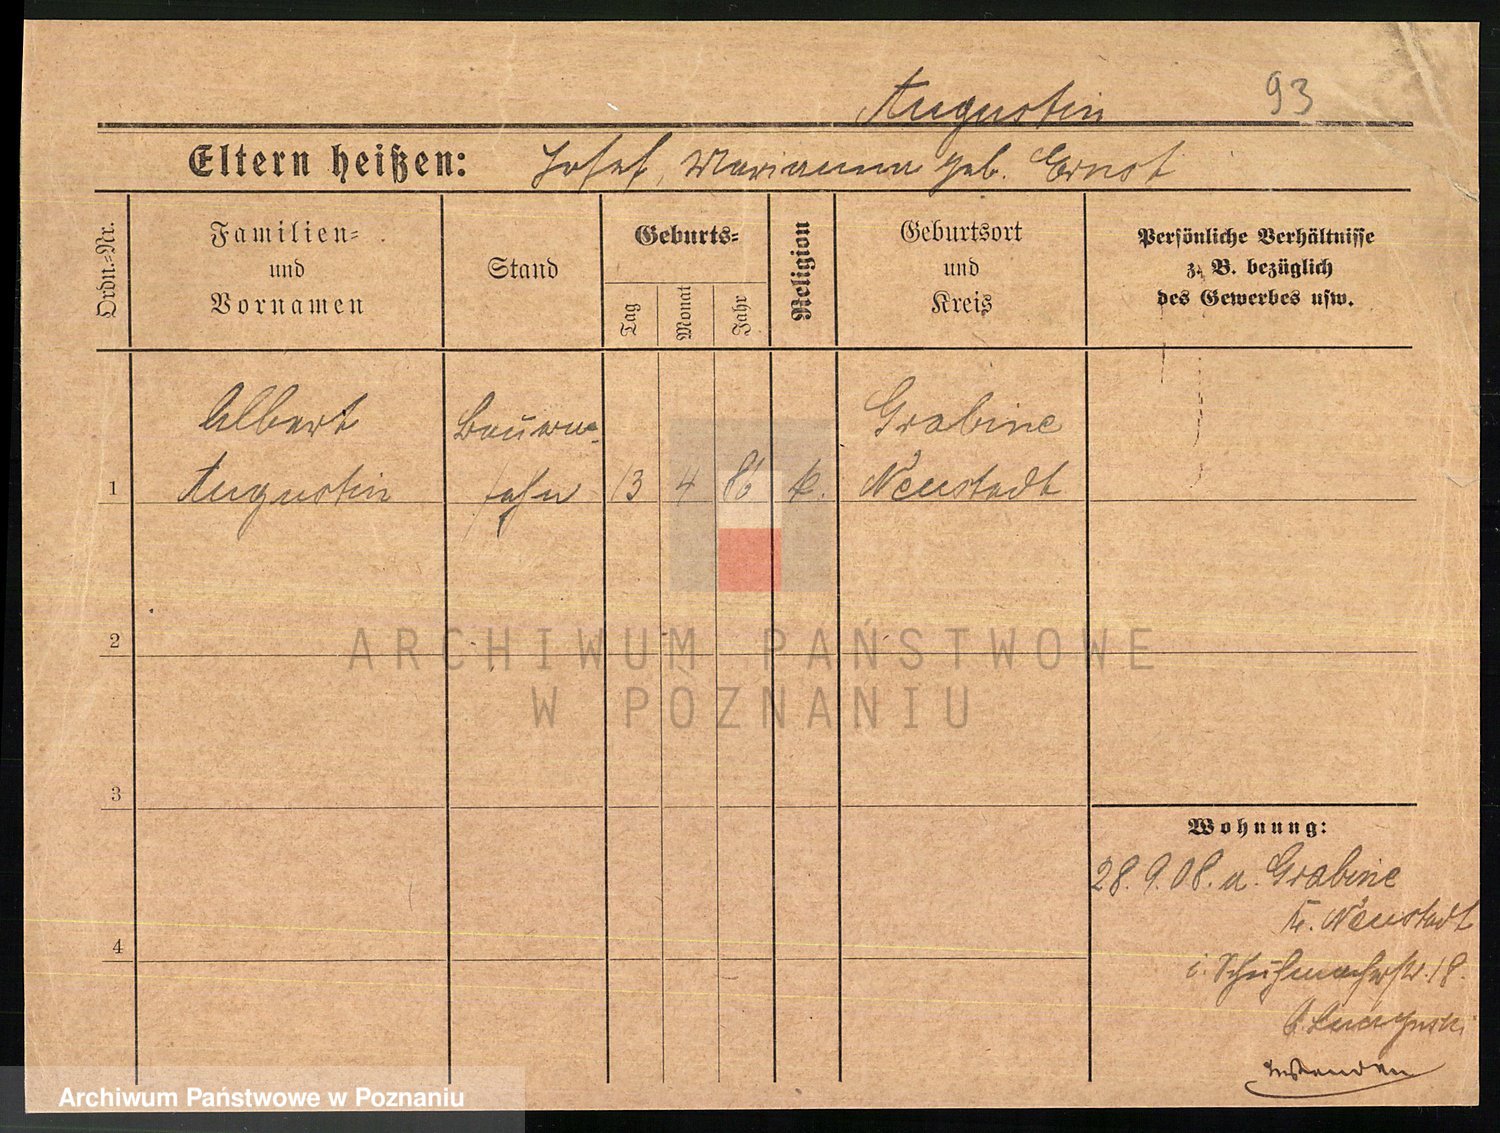 Augustin 93
Eltern heißen: Josef, Marianna geb. Ernst
Ordn.-Nr.
Familien-
und
Vornamen
Stand
Geburts-
Tag
Monat
Jahr
Religion
Geburtsort
und
Kreis
Persönliche Verhältnisse
z. B. bezüglich
des Gewerbes usw.
Albert Bauern- Grabine
1 Augustin sohn 13 4 86 k. Neustadt
2
ARCHIWUM PAŃSTWOWE
W POZNANIU
3
Wohnung:
28. 9. 08. a. Grabine
Kr. Neustadt
4
i. Schuhmacherstr. 18.
Archiwum Państwowe w Poznaniu